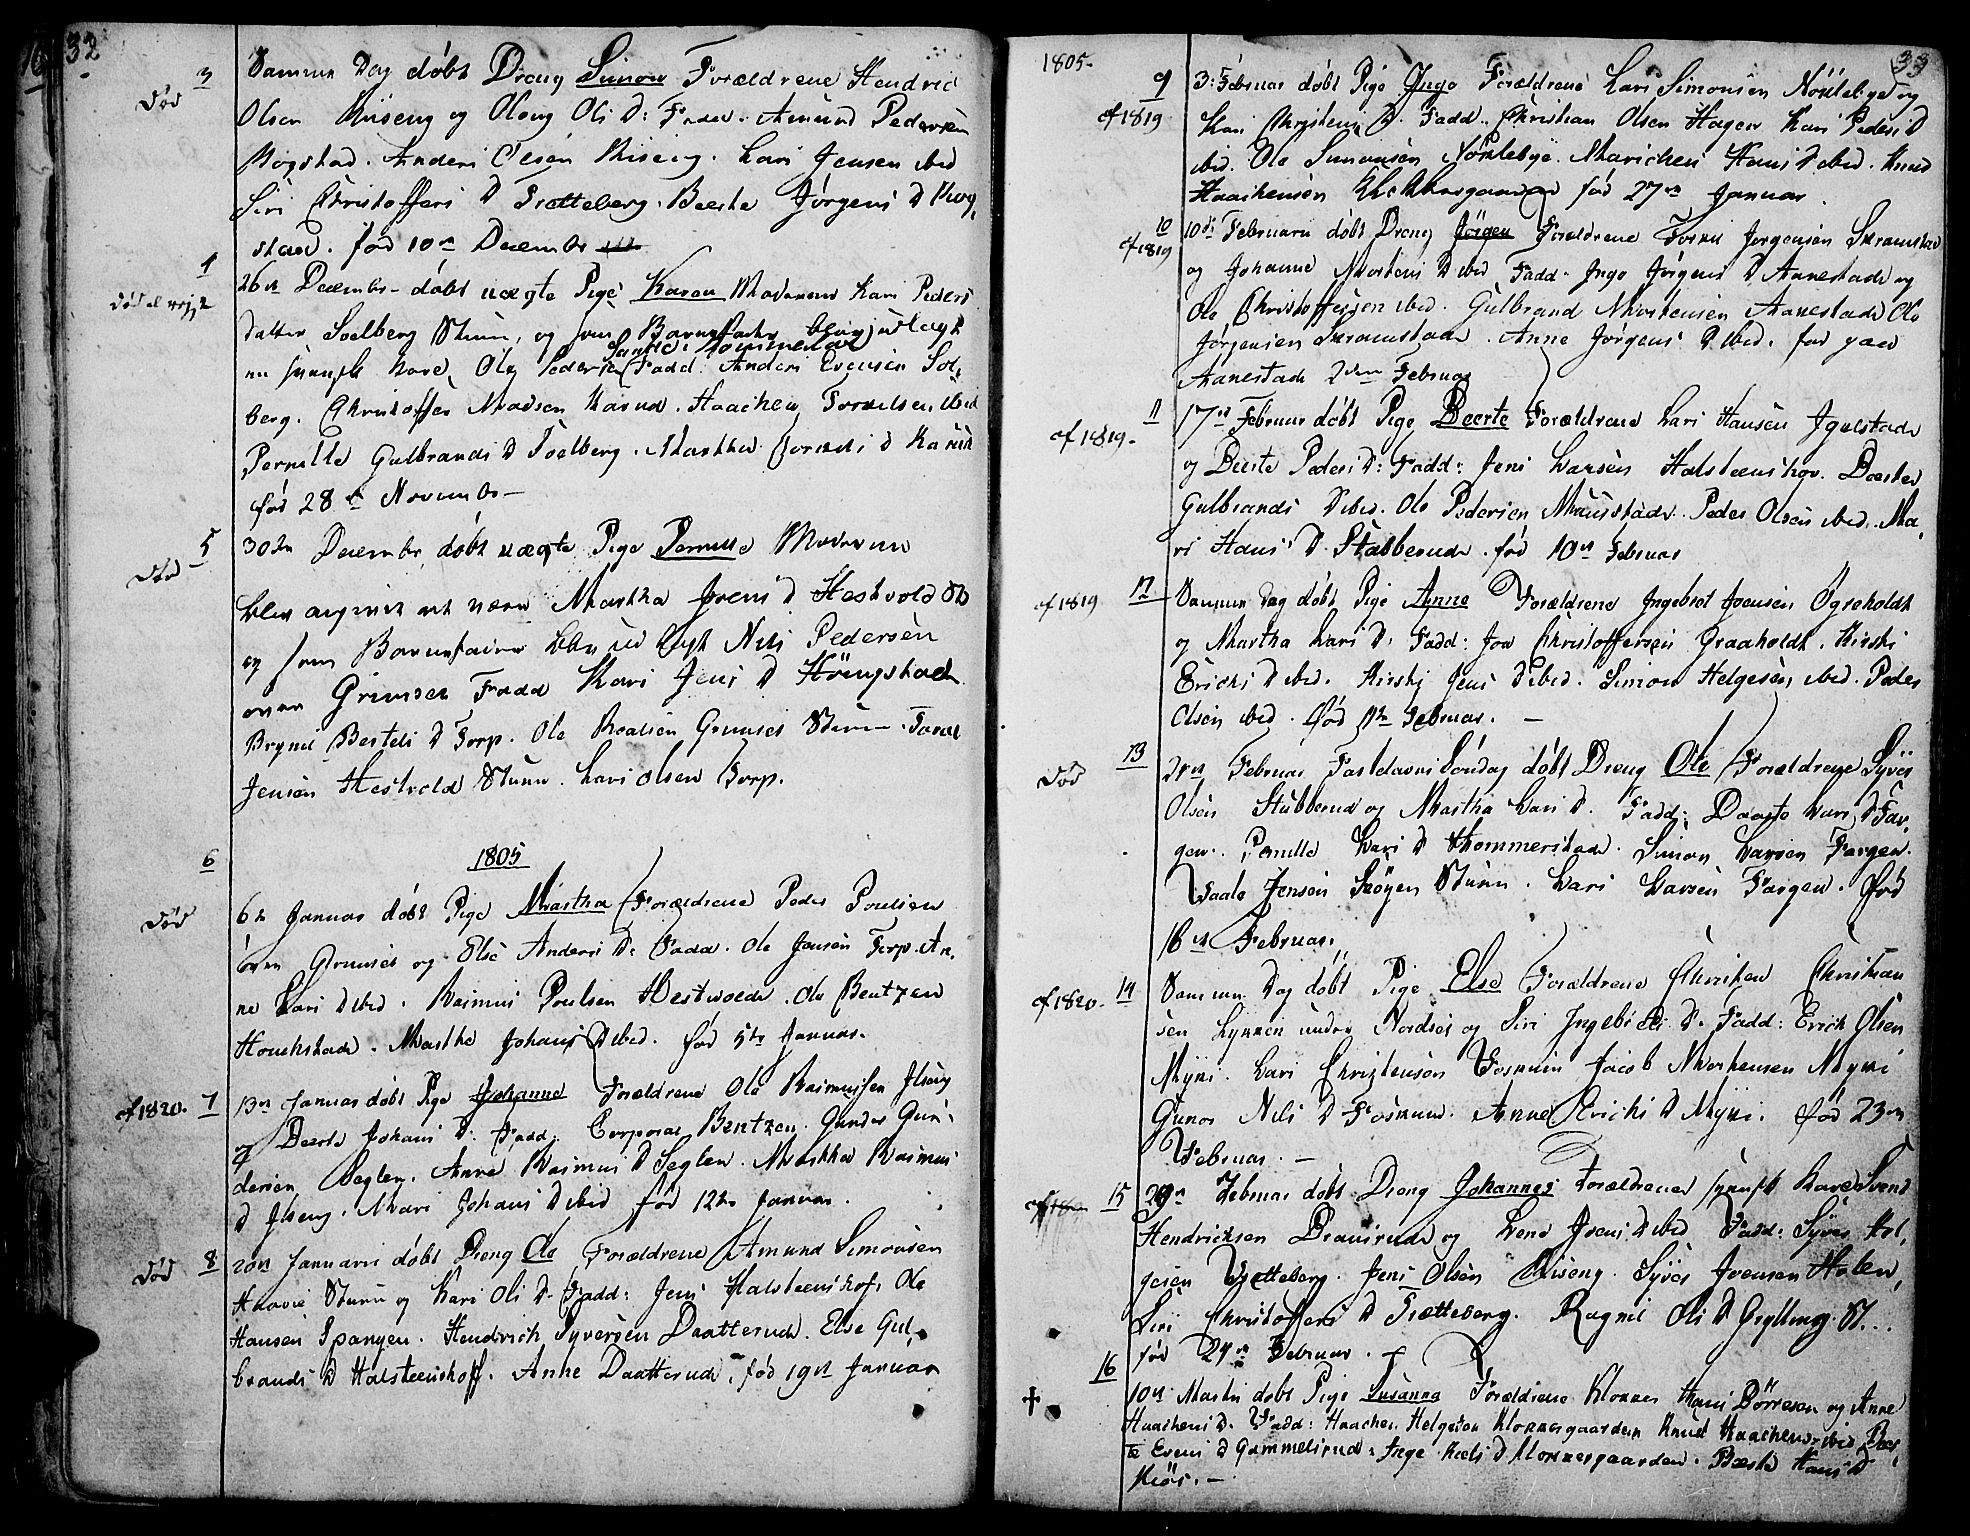 32
3 Samme Dag døbt Dreng Simon Forældrene Hendric
Død
Olsen Riiseng og Oloug Ols D: Fadd. Amund Pedersen
Rogstad. Anders Olsen Riseng. Lars Jensen ibid
Siri Christoffers D Tratteberg. Beerte Jørgens D Rog,
stad. fød 10de December
4 26de December døbt uægte Pige Karen Moderen Kari Peders
Død
datter Soelberg Stuen, og som Barnefader blev udlagt
Ole Pedersen Fadd. Anders Evensen Sol,
berg. Christoffer Madsen. Haachen ibid
Pernille Gulbrands D Soelberg. Martha D
fød 28de November
5 30de December døbt uægte Pige Pernille Moderen
Død
blev angivet at være Martha Joens D Hestvold St
og som Barnefader blev udlagt Nils Pedersen
Grimset Fadd Kari Jens D Høingstad
Brynil Bertels D Torp. Ole Grimset Stuen.
Jensen Hestvold Stuen. Lars Olsen Torp.
1805
6
6te Januar døbt Pige Martha Forældrene Peder Poulsen
Død
Grimset og Else Anders D: Fadd. Ole Jensen Torp. An,
ne Lars D ibid. Rasmus Poulsen Hestvolde. Ole Bentzen
Martha Johans D ibid. fød 5te Januar.
cf 1820. 7 13de Januar døbt Pige Johanne Forældrene Ole Rasmussen Ilseng
og Beerte Johans D. Fadd. Corporal Bentzen. Gunder Gun,
dersen Seglen. Anne Rasmus D Seglen. Martha Rasmus
D Ilseng. Mari Johans D ibid fød 12te Januar.
Død 8 20de Januari døbt Dreng Ole Forældrene Amund Simonsen
Stuen og Kari Ols D. Fadd: Jens Halsteenshof. Ole
Hansen Spangen. Hendrich Syversen Daatterud. Else Gul,
brands D Halsteenshoff. Anne Daatterud. fød 19de Januar
1805.
33
9 3: Februar døbt Pige Inge Forældrene Lars Simonsen Nortebye og
cf 1819
Kari Christens D. Fadd. Christian Olsen Hagen Kari Peders D
ibid. Ole Simonsen Nortebye. Marichen Hans D ibid. Knud
Haachensen Klokkergaarden fød 27de Januar.
10 10de Februari døbt Dreng Jörgen Forældrene Jørgensen Skramstad
cf 1819
og Johanne Mortens D ibid Fadd. Inge Jørgens D Aanestad og
Ole Christoffersen ibid. Gulbrand Mortensen Aanestad Ole
Jørgensen Skramstad. Anne Jørgens D ibid. fød paa
Aanestad 2den Februar
11 17de Februar døbt Pige Beerte Forældrene Lars Hansen Igelstad
cf 1819.
og Beerte Peders D: Fadd: Jens Larsen Halsteenshov. Dorthe
Gulbrands D ibid. Ole Pedersen Peder Olsen ibid. Ma,
ri Hans D Stabberud. fød 10de Februar
cf 1819 12 Samme Dag døbt Pige Anne Forældrene Ingebret Joensen Ogreholdt
og Martha Lars D. Fadd: Joe Christoffersen Graaholdt. Kirsti
Erichs D ibid. Kirsti Jens D ibid. Simon Helgesen ibid. Peder
Olsen ibid. fød 11te Februar.
13 Februar Fastelavns Søndag døbt Dreng Ole Forældrene Syver
Død
Olsen Stubberud og Martha Lars D. Fadd: Dorte Lars D Far,
gen. Pernille Lars D Hommerstad. Simon Larsen Fargen.
Jensen Skøyen Stuen. Lars Larsen Fargen. fød
16de Februar.
cf 1820. 14 Samme Dag døbt Pige Else Forældrene Christen Christian
sen Lykken under Nordset og Siri Ingebrets D. Fadd: Erich Olsen
Myri. Lars Christensen Fosnum Jacob Mortensen Myri
Gunor Nils D Fosnum. Anne Erichs D Myri. fød 23de
Februar.
15 Februar døbt Dreng Johannes Forældrene Svend
Hendricksen og Lene Joens D ibid Fadd: Syver Hel,
gesen Tratteberg. Jens Olsen Riiseng. Syver Joensen Holen,
Siri Christoffers D Tratteberg. Ragnil Ols D Grylling St.
fød 24de Februar.
16
✝ 10de Martii døbt Pige Susanna Forældrene Klokker Hans Börresen og Anne
Haachens D. Fadd: Haachen Helgesen Klokkergaarden Knud Haachens ibid. Beer,
te Evens D Gammelsrud. Inge Niels D Klokkergaarden. Beerte Hans D